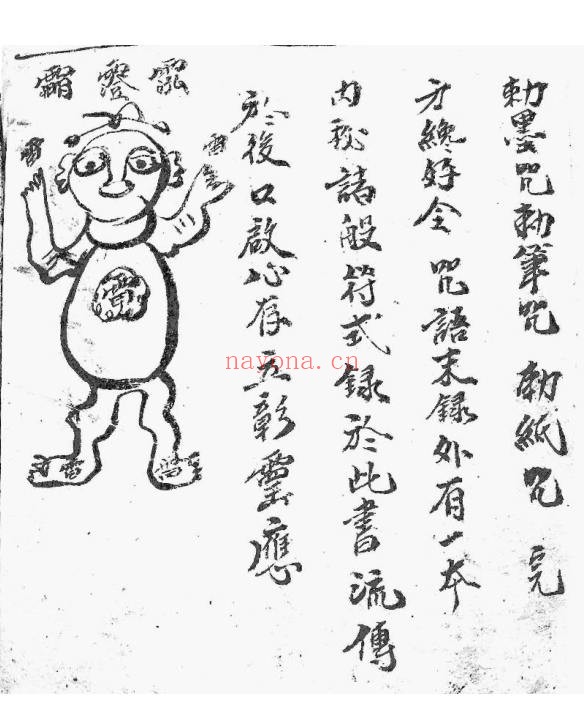 勅墨咒勅筆咒 勅紙咒 完
方纔好全 咒語未録外有一本
内秘諸般符式録於此書流傳
於後口啟心存立彰靈應
雷
雷
雷
雷
nayona.cn